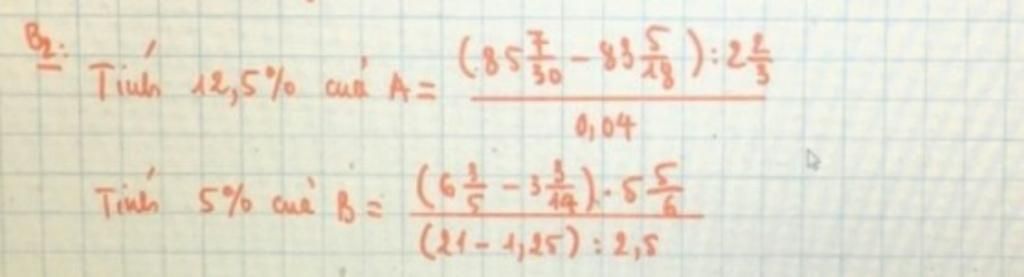 B2: Tính 12,5% của A = ((85 7/30 - 83 5/18) : 2 2/3) / 0,04
Tính 5% của B = ((6 3/5 - 3 3/14) . 5 5/6) / ((21 - 1,25) : 2,5)